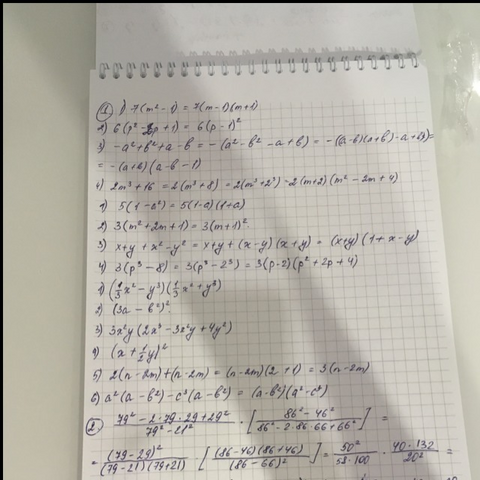 ① 1) 7(m² - 1) = 7(m-1)(m+1)
2) 6(p² - 2p + 1) = 6(p-1)²
3) -a² + b² + a - b = -(a² - b² - a + b) = -((a-b)(a+b) - a + b) =
= -(a+b)(a-b-1)
4) 2m³ + 16 = 2(m³ + 8) = 2(m³ + 2³) = 2(m+2)(m² - 2m + 4)
1) 5(1 - a²) = 5(1-a)(1+a)
2) 3(m² + 2m + 1) = 3(m+1)²
3) x + y + x² - y² = x + y + (x-y)(x+y) = (x+y)(1 + x - y)
4) 3(p³ - 8) = 3(p³ - 2³) = 3(p-2)(p² + 2p + 4)
1) (1/3 x² - y³)(1/3 x² + y³)
2) (3a - b²)²
3) 3x²y(2x³ - 3x²y + 4y²)
4) (x + 1/2 y)²
5) 2(n-2m) + (n-2m) = (n-2m)(2+1) = 3(n-2m)
6) a²(a - b²) - c³(a - b²) = (a-b²)(a² - c³)
② (79² - 2·79·29 + 29²)/(79² - 21²) · [(86² - 46²)/(86² - 2·86·66 + 66²)] =
= (79-29)²/((79-21)(79+21)) · [(86-46)(86+46)/(86-66)²] = 50²/(58·100) · (40·132)/20² =